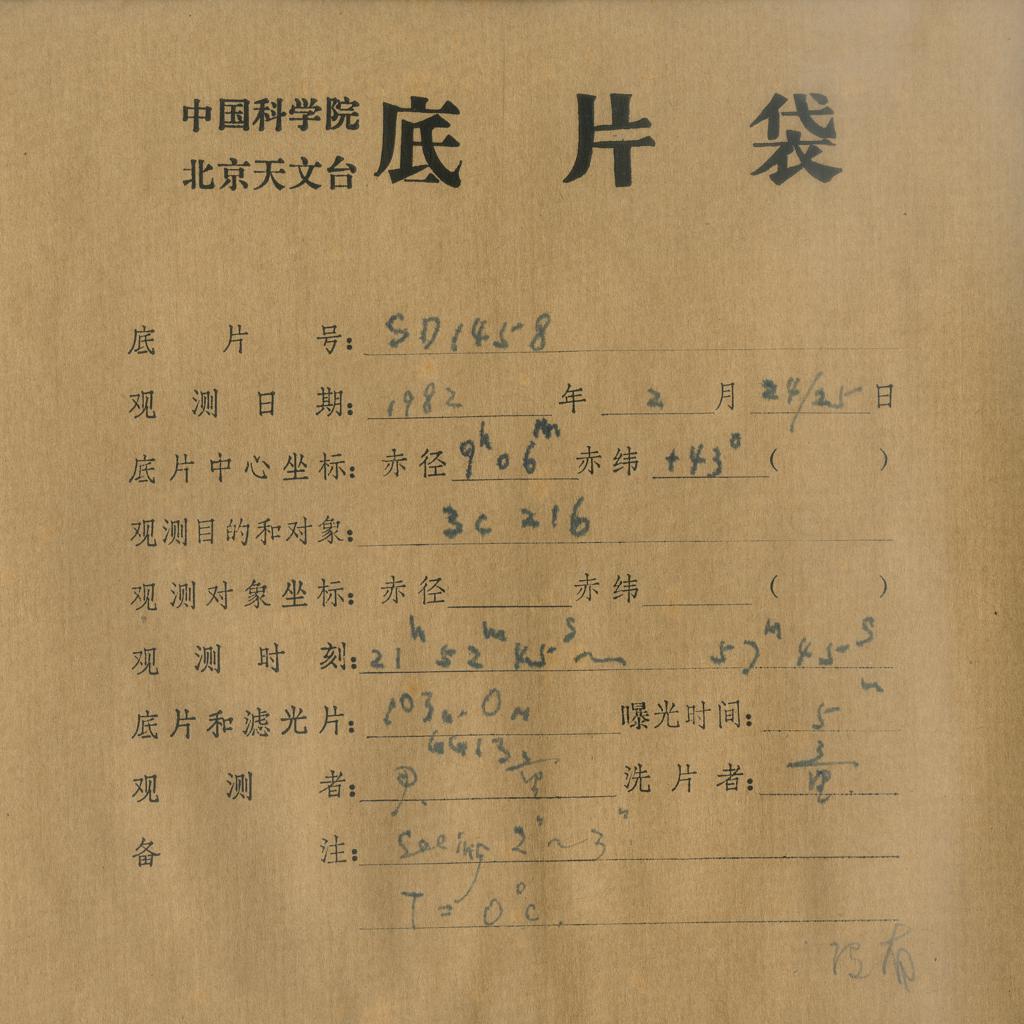 中国科学院
北京天文台 底片袋
底片号: SD1458
观测日期: 1982 年 2 月 24/25 日
底片中心坐标: 赤径 9h06m 赤纬 +43° ( )
观测目的和对象: 3C 216
观测对象坐标: 赤径 赤纬 ( )
观测时刻: 21h 52m 45s ~ 57m 45s
底片和滤光片: 103a-O 曝光时间: 5m
GG13
观测者: 洗片者:
备注: Seeing 2"~3"
T = 0°C.
没有